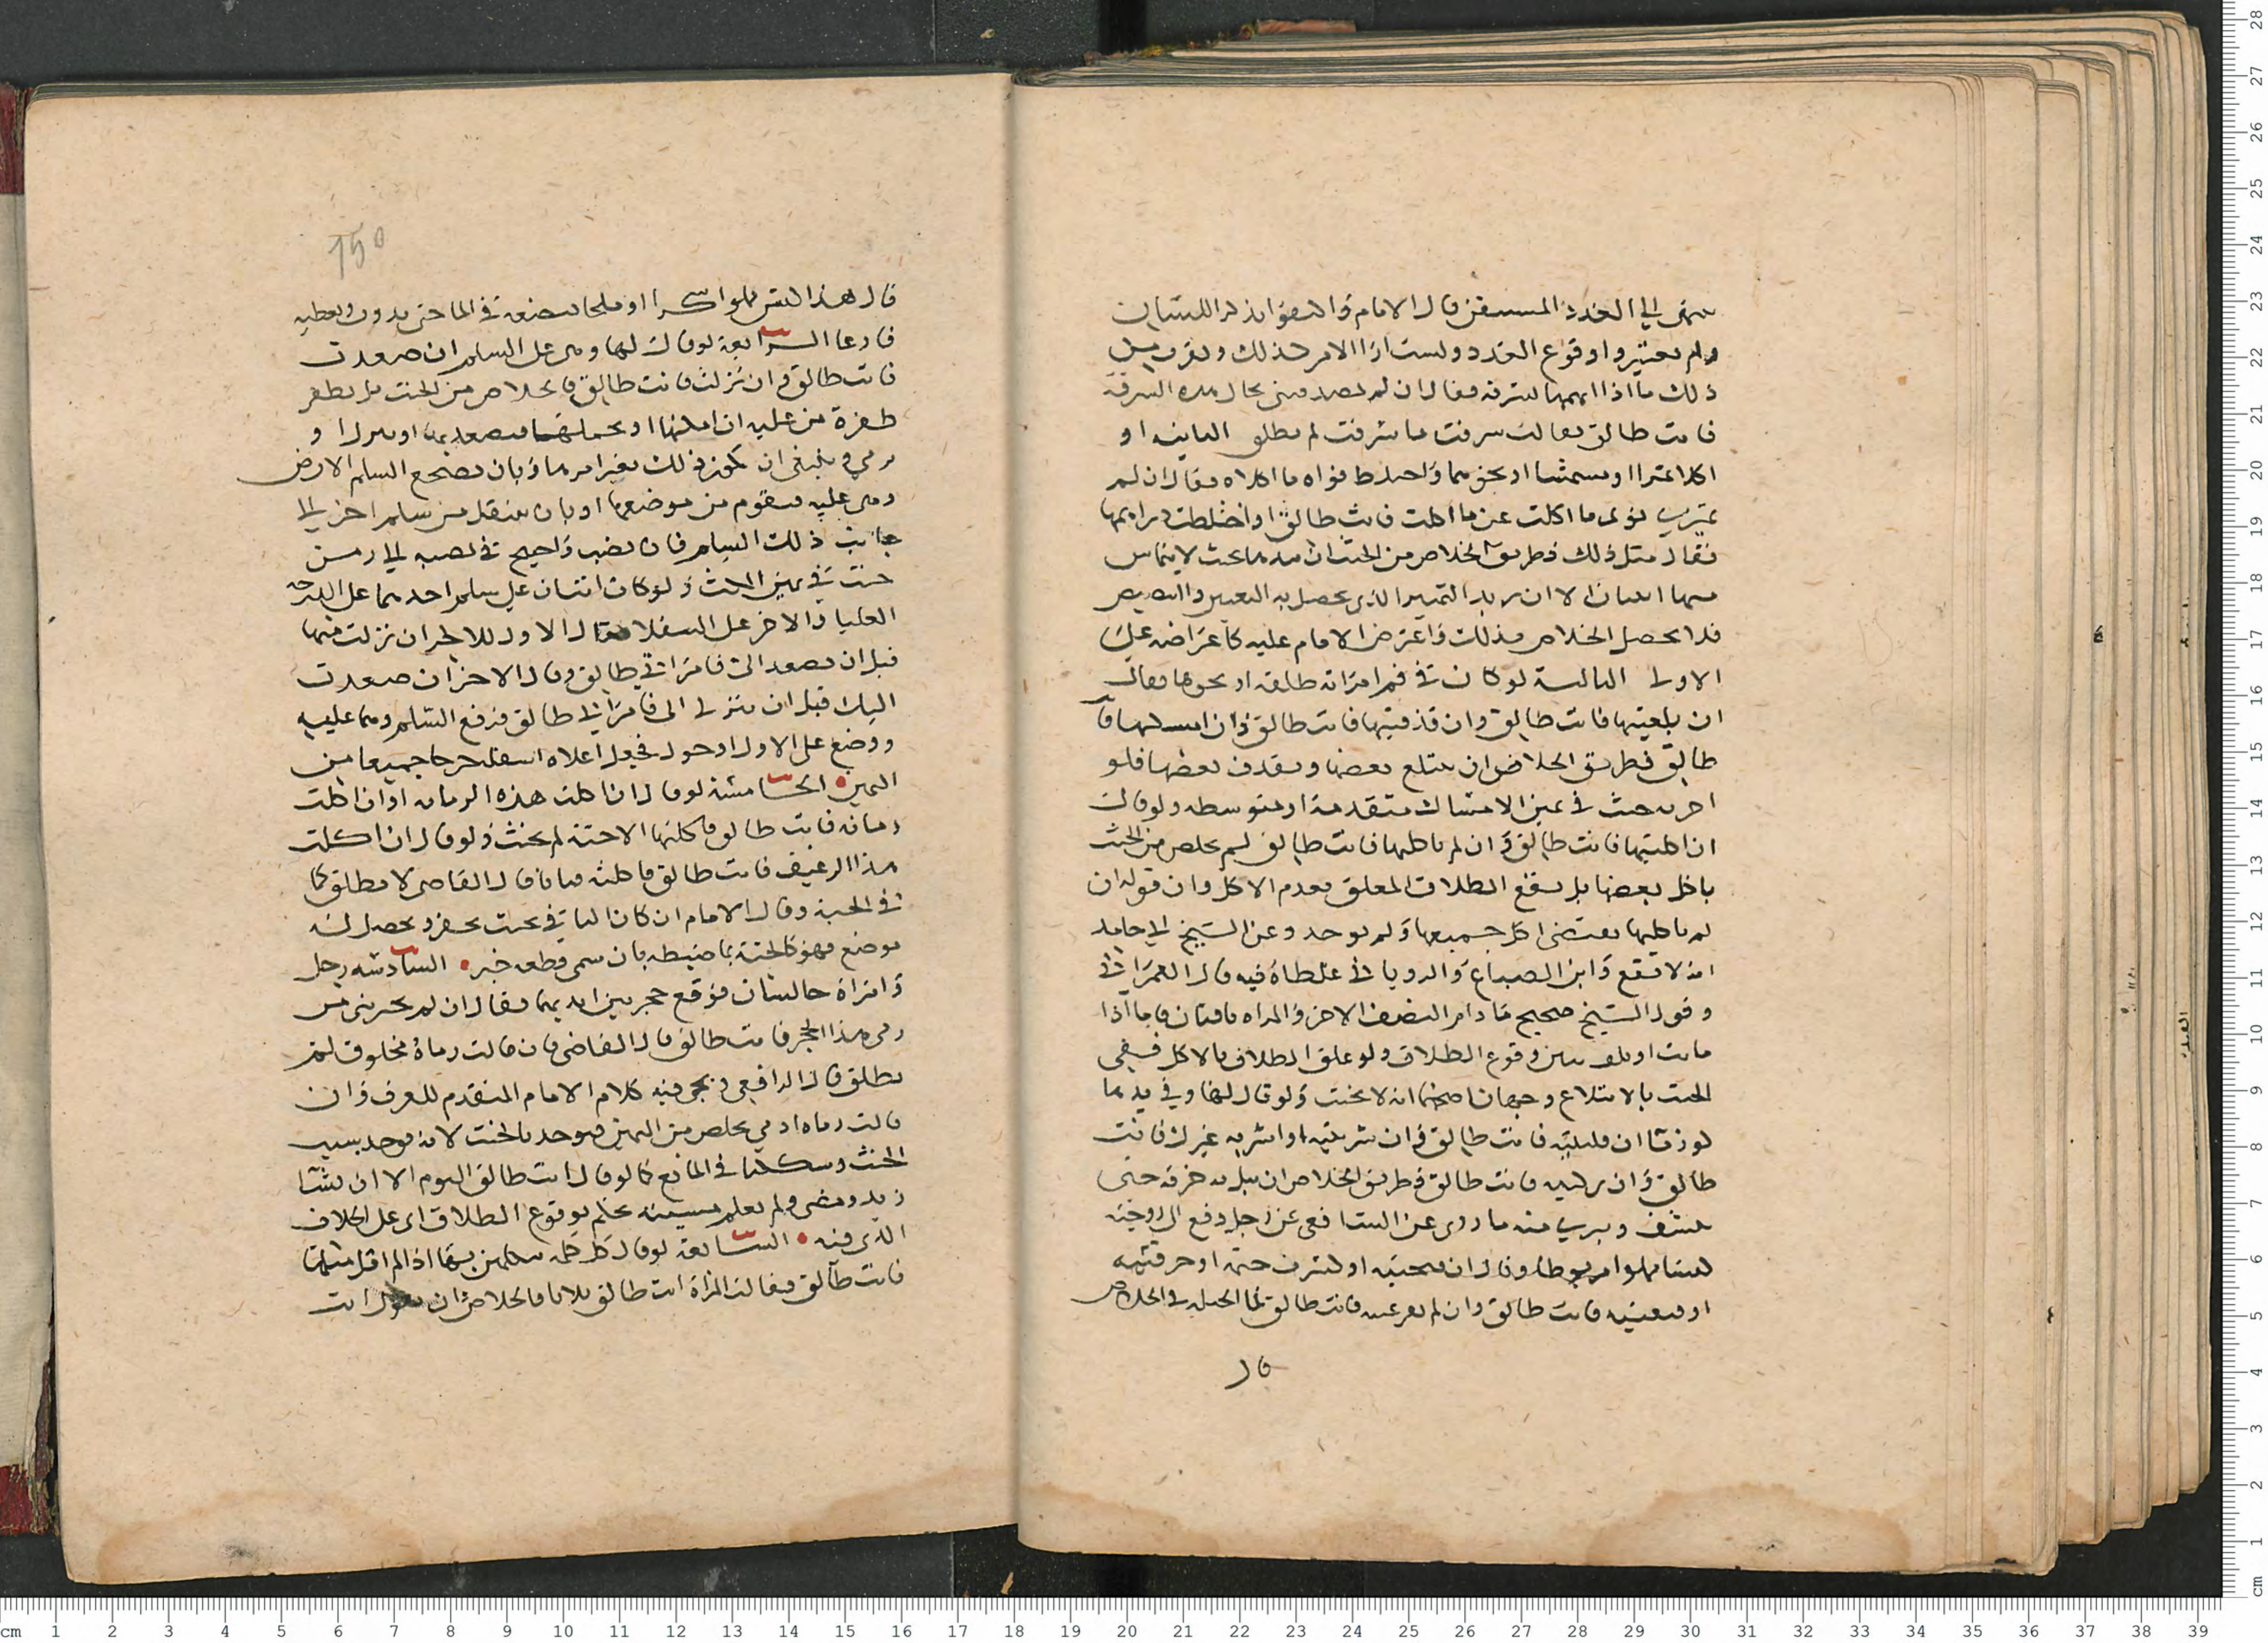 ينتهي الي العدد المستيقن قال الامام والاصحاب اللسان
ولم يعتبروا وقوع العدد وليست اذا الامر كذلك ويقرب من
ذلك ما اذا اتهمها بسرقة فقال ان لم تصدقيني بحال هذه السرقة
فانت طالق فقالت سرقت ما سرقت لم تطلق الثانية او
اكلا تمرا او مشمشا او نحوهما واختلط نواه ما اكلاه فقال ان لم
تميزي نوى ما اكلت عن ما اكلت فانت طالق او اختلطت دراهمها
فقال مثل ذلك فطريق الخلاص من الحنث ان تبددها بحيث لا يتماس
منها اثنان الا ان يريد التمييز الذي يحصل به التعيين والتنصيص
فلا يحصل الخلاص بذلك واعترض الامام عليه كاعتراضه علي
الاولى الثالثة لو كان في فم امراته طلقة او نحوها فقال
ان بلعتيها فانت طالق وان قذفتيها فانت طالق وان امسكتيها فانت
طالق فطريق الخلاص ان تبتلع بعضها وتقذف بعضها فلو
اخرته حنث في يمين الامساك متقدمة او متوسطة ولو قال
ان اكلتيها فانت طالق وان لم تاكليها فانت طالق لم يخلص من الحنث
باكل بعضها بل يقع الطلاق المعلق بعدم الاكل وان قوله ان
لم تاكليها يقتضي اكل جميعها ولم يوجد وعن الشيخ ابي حامد
انه لا يقع وابن الصباغ والروياني غلطاه فيه قال العمراني
وقول الشيخ صحيح ما دام النصف الاخر والمراه باقيان فاما اذا
ماتت او تلف تبين وقوع الطلاق ولو علق الطلاق بالاكل ففي
الحنث بالابتلاع وجهان اصحهما انه لا يحنث ولو قال لها وفي يدها
كوز ماء ان قلبتيه فانت طالق وان شربتيه او اشربه غيرك فانت
طالق وان تركتيه فانت طالق فطريق الخلاص ان تبل به خرقة حتى
ينشف وقريب منه ما روى عن الشافعي عن رجل دفع الى زوجته
كيسا مملوا مربوطا وقال ان فتحتيه او كسرت ختمه او خرقتيه
او فتقتيه فانت طالق وان لم تفرغيه فانت طالق فما الحيلة في الخلاص
قال
150
قال هذا الكيس مملوا سكرا او ملحا فتضعه في الماء حتى يذوب وتعطيه
فارغا الرابعة لو قال لها وهي على السلم ان صعدت
فانت طالق وان نزلت فانت طالق فالخلاص من الحنث بان تطفر
طفرة من عليه ان امكنها او بحملها فيصعد بها او ينزل او
يرمى وينبغي ان يكون ذلك بغير امرها وبان يضجع السلم الارض
وهي عليه فتقوم من موضعها او بان تنتقل من سلم اخر الى
جانب ذلك السلم فان نصب واحتيج في نصبه الي زمن
حنث في يمين المكث ولو كان انسان علي سلم احدهما على الدرجة
العليا والاخر على السفلا فقال الاول للاخر ان نزلت منها
قبل ان تصعد الي فامراتي طالق وقال الاخر ان صعدت
اليك قبل ان تنزل الي فامراتي طالق فرفع السلم وهما عليه
ووضع على الاول او حول فجعل اعلاه اسفله خرجا جميعا من
اليمين • الخامسة لو قال ان اكلت هذه الرمانه او ان اكلت
رمانة فانت طالق فاكلتها الا حبة لم يحنث ولو قال ان اكلت
هذا الرغيف فانت طالق فاكلته فتاتا قال القاضي لا تطلق كما
في الحبة وقال الامام ان كان الباقي بحيث يحس ويحصل له
موضع فهو كالحبة بما ضبطه بان يسمى قطعة خبز • السادسه رجل
وامراة جالسان فوقع حجر بين ايديهما فقال ان لم تخبريني من
رمى هذا الحجر فانت طالق قال القاضي فان قالت رماه مخلوق لم
تطلق قال الرافعي ويجيء فيه كلام الامام المتقدم للعرف وان
قالت رماه ادمي يخلص من اليمين فهو حد بالحنث لانه يوجد بسبب
الحنث وشككنا في المانع كما لو قال انت طالق اليوم الا ان يشا
زيد ومضى ولم تعلم مشيته يحكم بوقوع الطلاق اي على الخلاف
الذي فيه • السابعة لو قال كل كلمة تكلمين بها اذا لم اقل مثلها
فانت طالق فقالت المراة انت طالق ثلاثا فالخلاص ان يقول انت